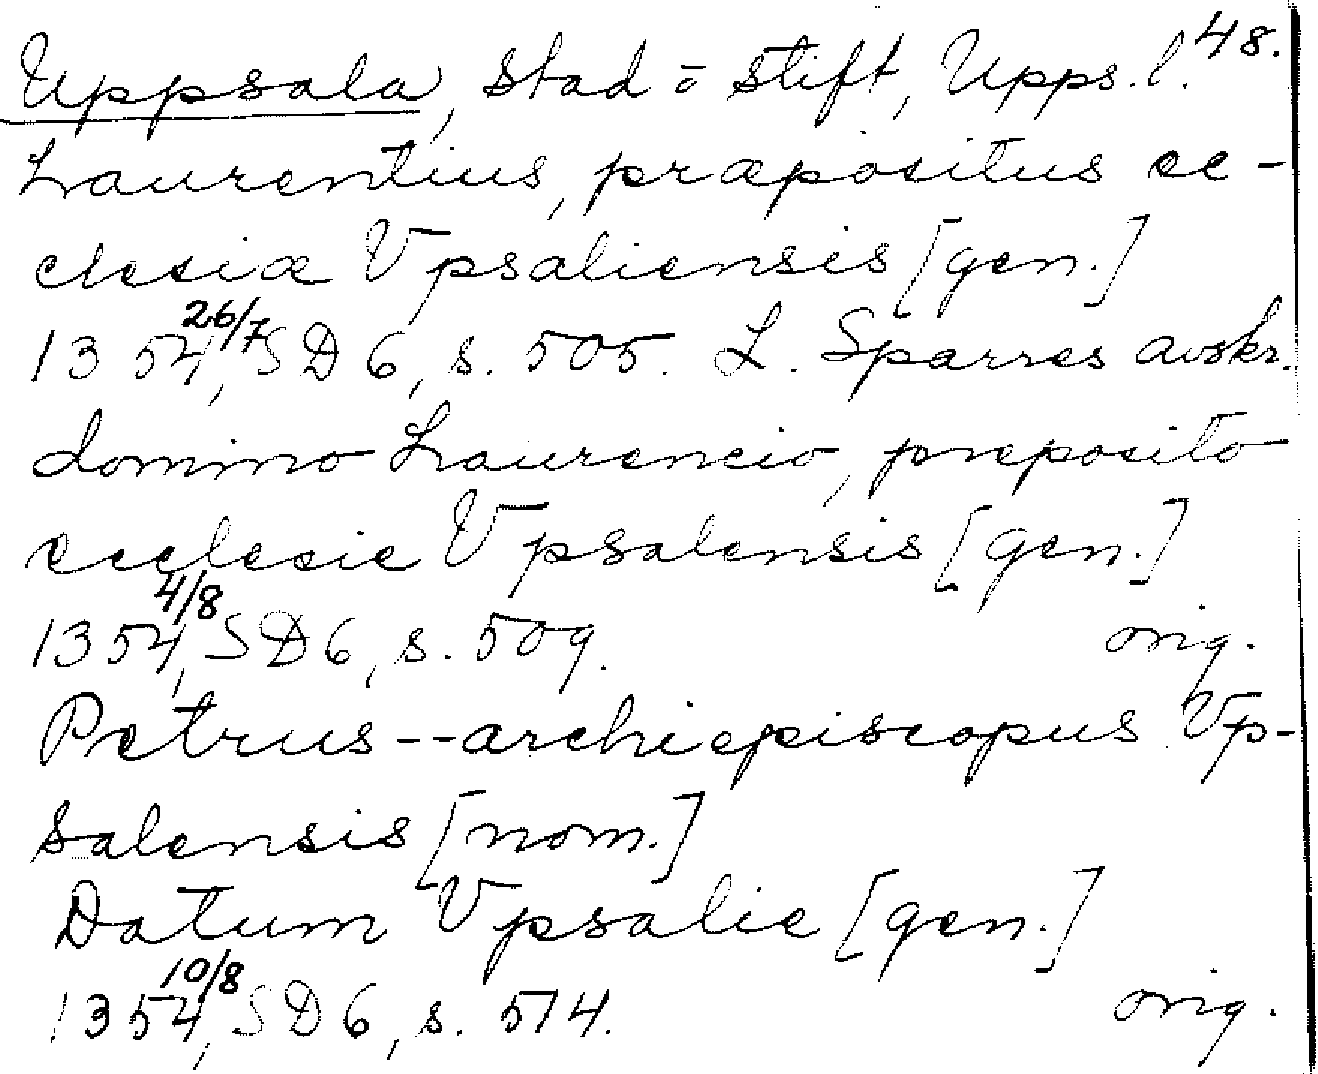 Uppsala, stad o stift, Upps. l. 48.
Laurentius, præpositus ec-
clesiæ Vpsaliensis [gen.]
1354 26/7, SD 6, s. 505. L. Sparres avskr.
domino Laurencio, preposito
ecclesie Vpsalensis [gen.]
1354 4/8, SD 6, s. 509. orig.
Petrus -- archiepiscopus Vp-
salensis [nom.]
Datum Vpsalie [gen.]
1354 10/8, SD 6, s. 514. orig.